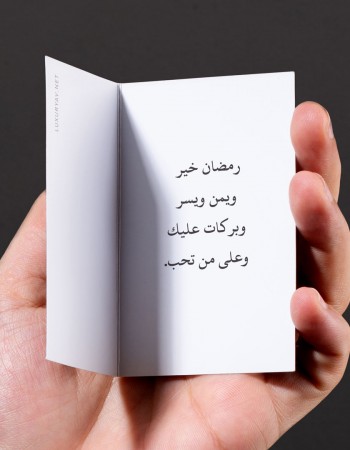 رمضان خير
ويمن ويسر
وبركات عليك
وعلى من تحب.
LUXURYBY.NET